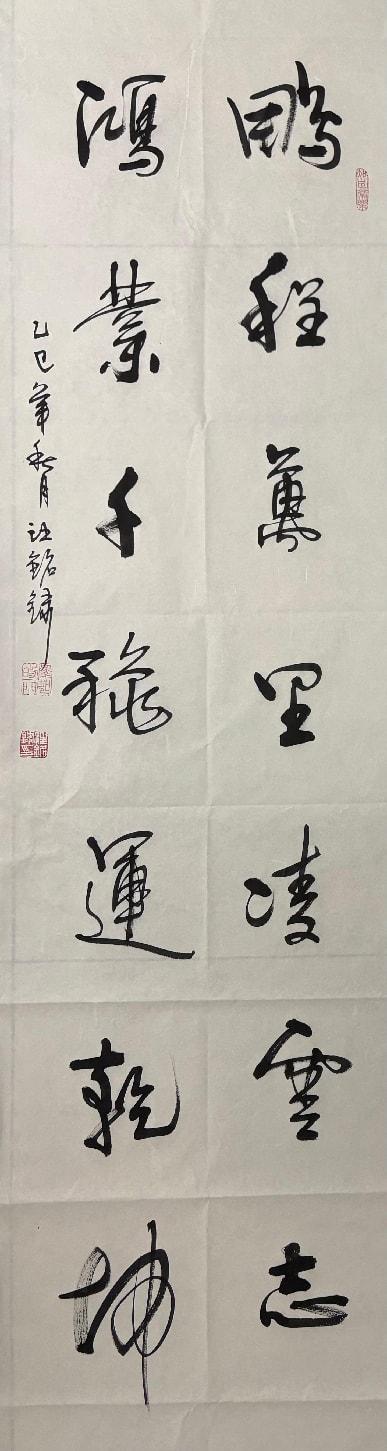 鵬程萬里凌雲志
鴻業千龝運乾坤
乙巳年秋月汪銘鏽